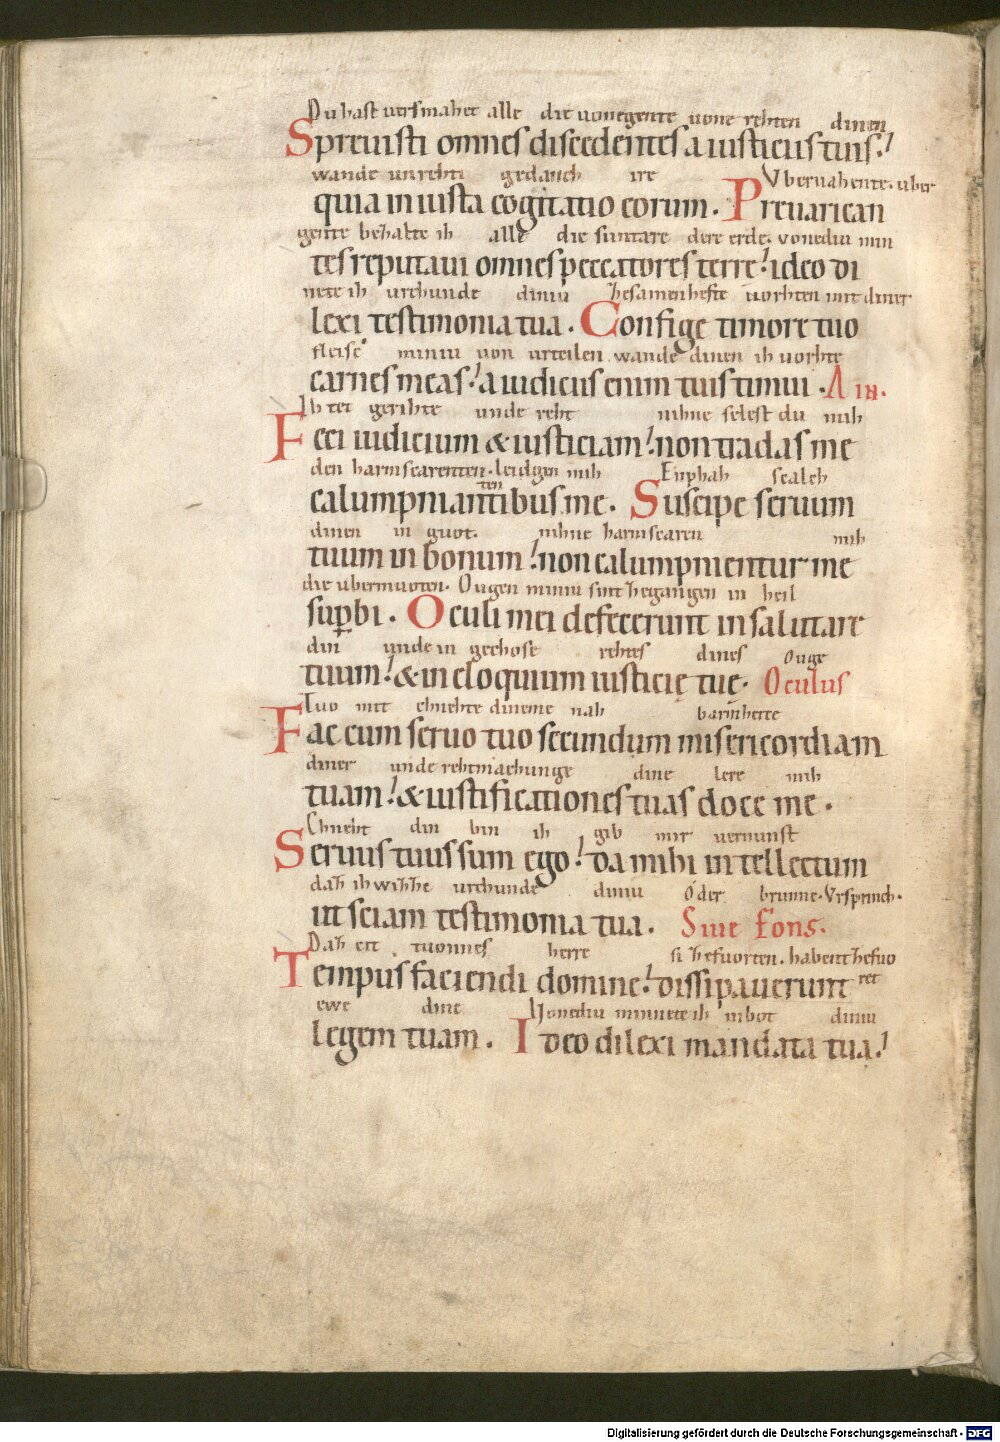 Du hast uersmahet alle die uonegente uone rehten dinen
Spreuisti omnes discedentes a iusticiis tuis.
wande unrehti gedanch ire Vberuahente. uber
quia iniusta cogitatio eorum. Preuarican
gente behabte ih alle die suntare dere erde. vonediu min
tes reputaui omnes peccatores terre! ideo di
nete ih urchunde diniu Zesamenhefte uorhten mit diner
lexi testimonia tua. Confige timore tuo
fleisc miniu von urteilen wande dinen ih uorhte
carnes meas! a iudiciis enim tuis timui. Ain.
Ih tet gerihte unde reht nihne selest du mih
Feci iudicium & iusticiam! non tradas me
den harmscarenten. leidgen mih Enphah scalch
ten
calumpniantibus me. Suscipe seruum
dinen in guot. nihne harmscaren mih
tuum in bonum! non calumpnientur me
die ubermuoten. Ougen miniu sint zegangen in heil
supbi. Oculi mei defecerunt in salutare
din unde in gechose rehtes dines Ouge
tuum! & in eloquium iusticię tuę. Oculus
Tuo mit chnehte dineme nah barmherte
Fac cum seruo tuo secundum misericordiam
diner unde rehtmachunge dine lere mih
tuam! & iustificationes tuas doce me.
Chneht din bin ih gib mir uernunst
Seruus tuus sum ego! da mihi intellectum
daz ih wizze urchunde diniu Oder brunne. Vrsprinch.
ut sciam testimonia tua. Siue fons.
Daz cit tuonnes herre si zefuorten. habent zefuo
Tempus faciendi domine! dissipauerunt ret
ewe dine Vonediu minnete ih inbot diniu
legem tuam. Ideo dilexi mandata tua!
Digitalisierung gefördert durch die Deutsche Forschungsgemeinschaft - DFG